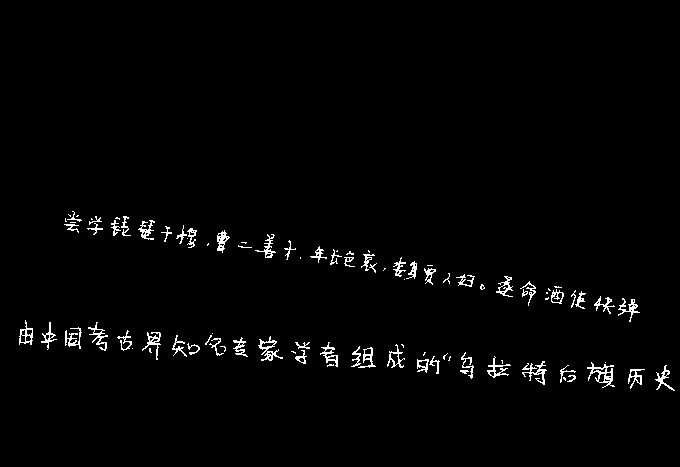 尝学琵琶于穆、曹二善才,年长色衰,委身贾人妇。遂命酒使快弹
由中国考古界知名专家学者组成的“乌拉特后旗历史